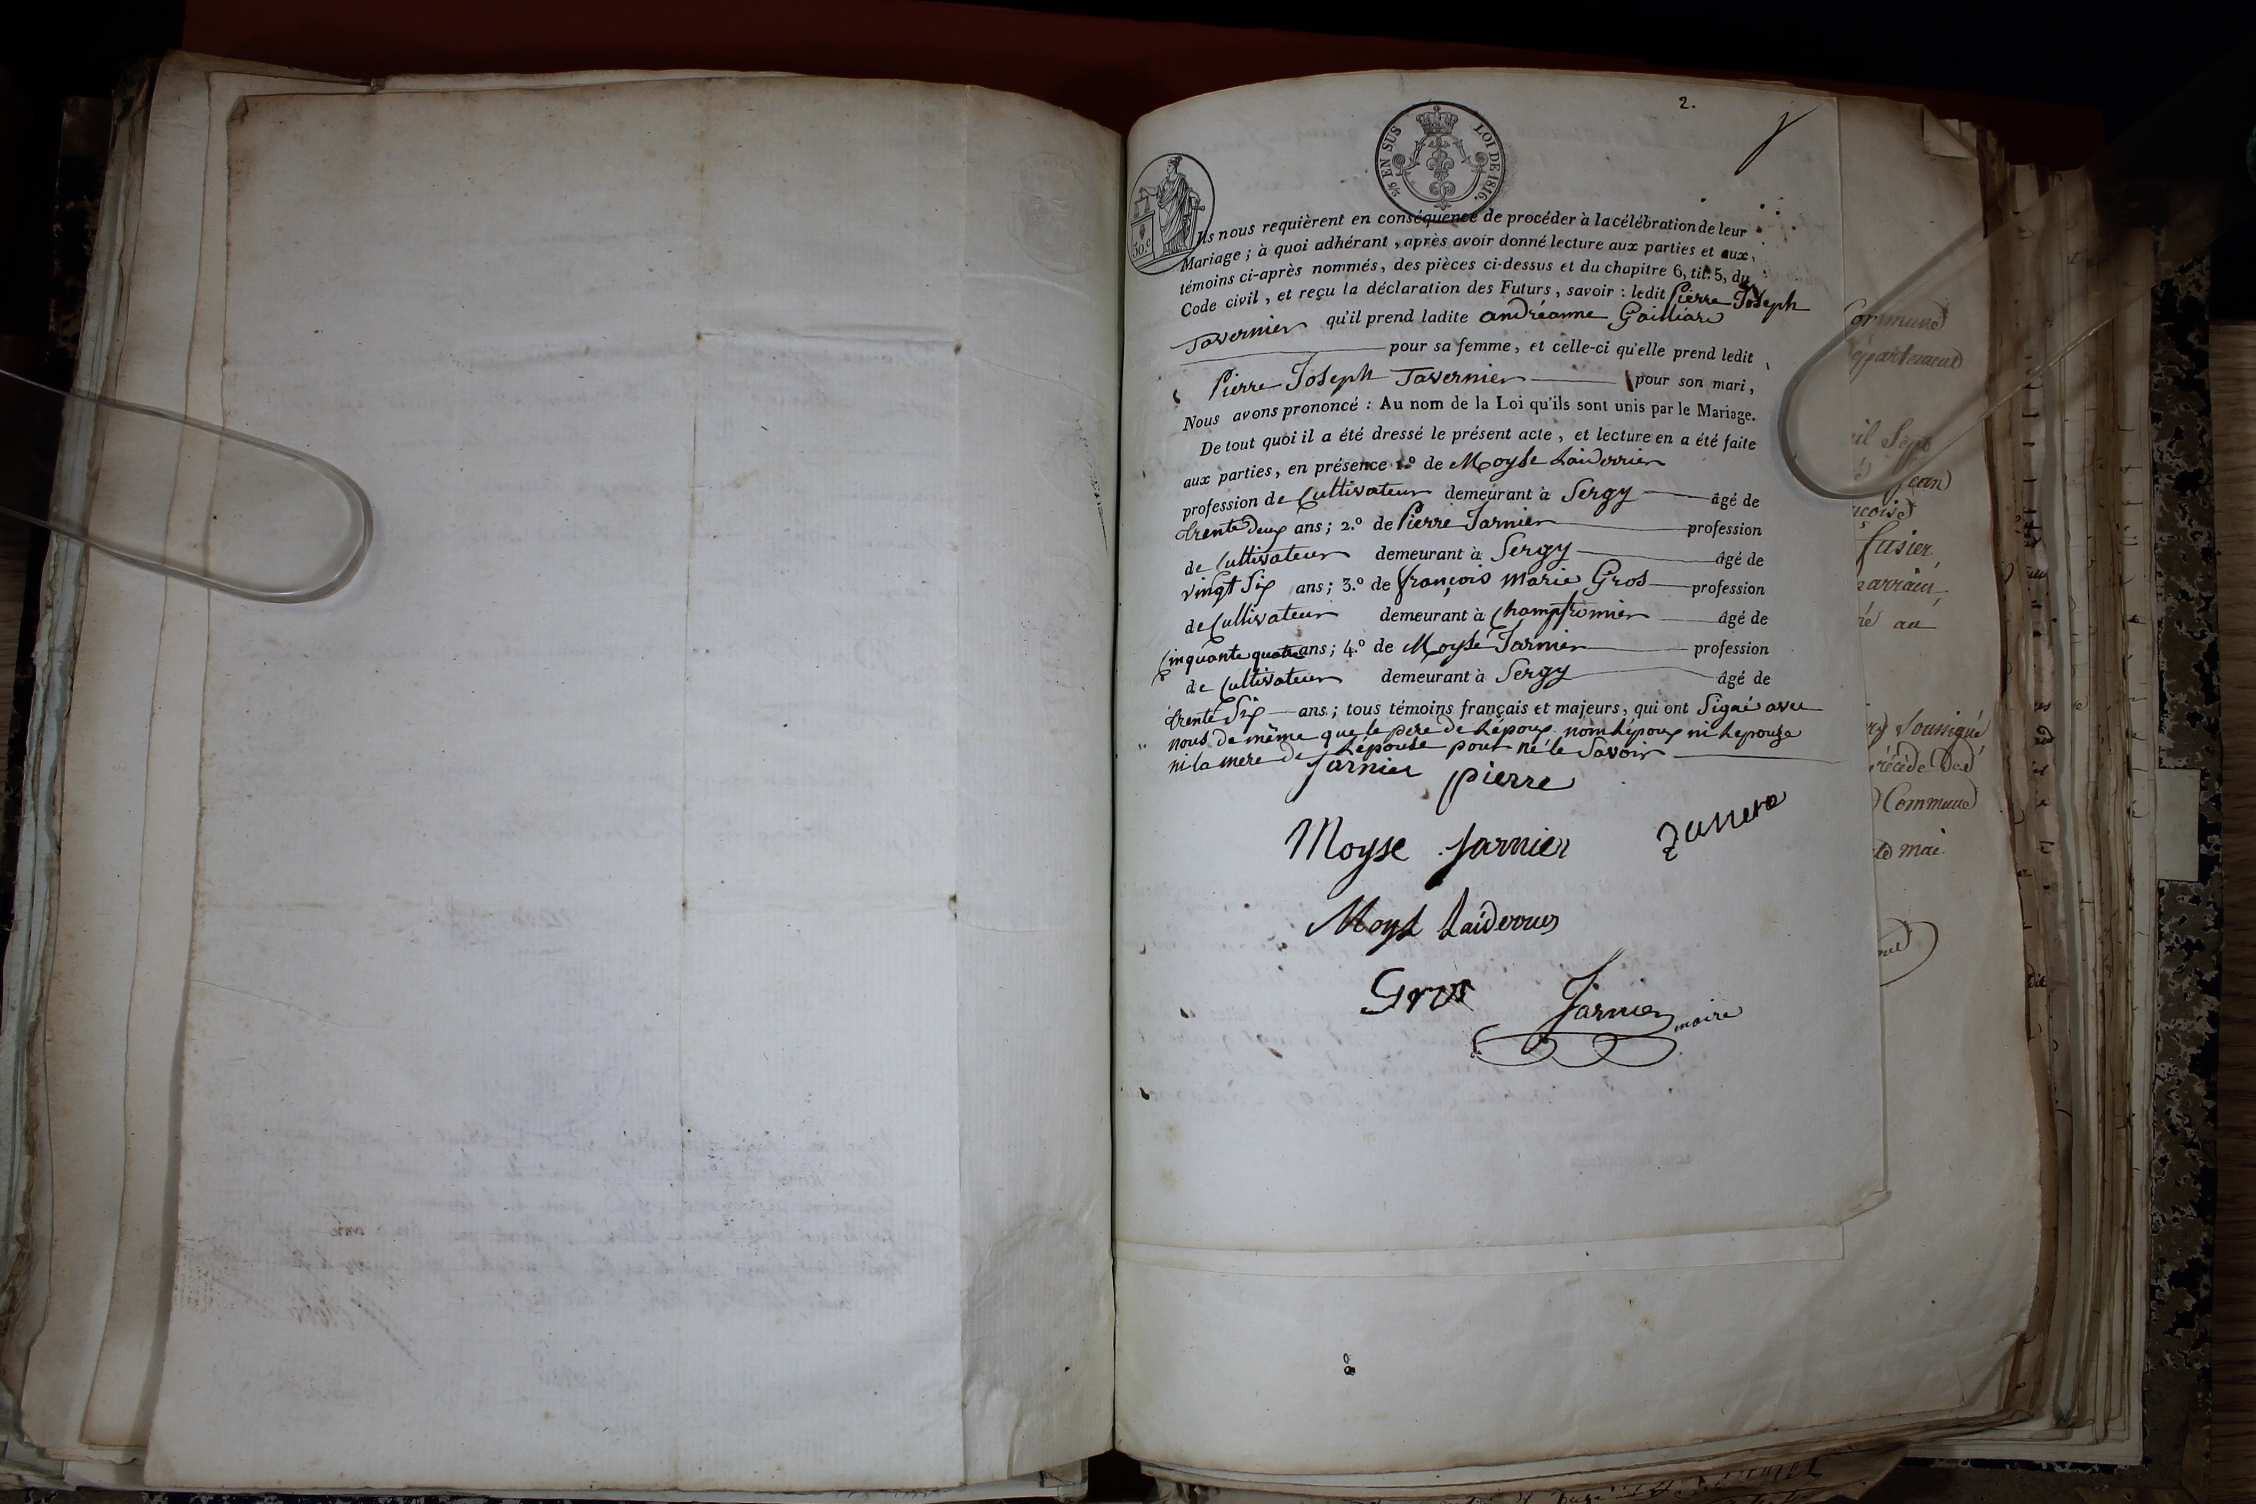 2.
5/s EN SUS LOI DE 1816.
30.c
Ils nous requièrent en conséquence de procéder à la célébration de leur
Mariage ; à quoi adhérant, après avoir donné lecture aux parties et aux
témoins ci-après nommés, des pièces ci-dessus et du chapitre 6, tit. 5, du
Code civil, et reçu la déclaration des Futurs, savoir : ledit Pierre Joseph
Tavernier qu'il prend ladite andréanne Gailliard
pour sa femme, et celle-ci qu'elle prend ledit
Pierre Joseph Tavernier pour son mari,
Nous avons prononcé : Au nom de la Loi qu'ils sont unis par le Mariage.
De tout quoi il a été dressé le présent acte, et lecture en a été faite
aux parties, en présence 1.º de Moyse Laiderrier
profession de Cultivateur demeurant à Sergy âgé de
trente Deux ans ; 2.º de Pierre Jarnier profession
de Cultivateur demeurant à Sergy âgé de
vingt Six ans ; 3.º de françois Marie Gros profession
de Cultivateur demeurant à Champfromier âgé de
Cinquante quatre ans ; 4.º de Moyse Jarnier profession
de Cultivateur demeurant à Sergy âgé de
trente Six ans ; tous témoins français et majeurs, qui ont Signé avec
nous de même que le pere de Lépoux non Lépoux ni Lepouze
ni la mere de Lépouse pour ne le Savoir
Jarnier pierre
Moyse Jarnier
Moyse Laiderrier
Gros Jarnier maire
Commune
département
mil Sept
Jean
fusier
parrain,
né au
soussigné
précède
Commune
de mai